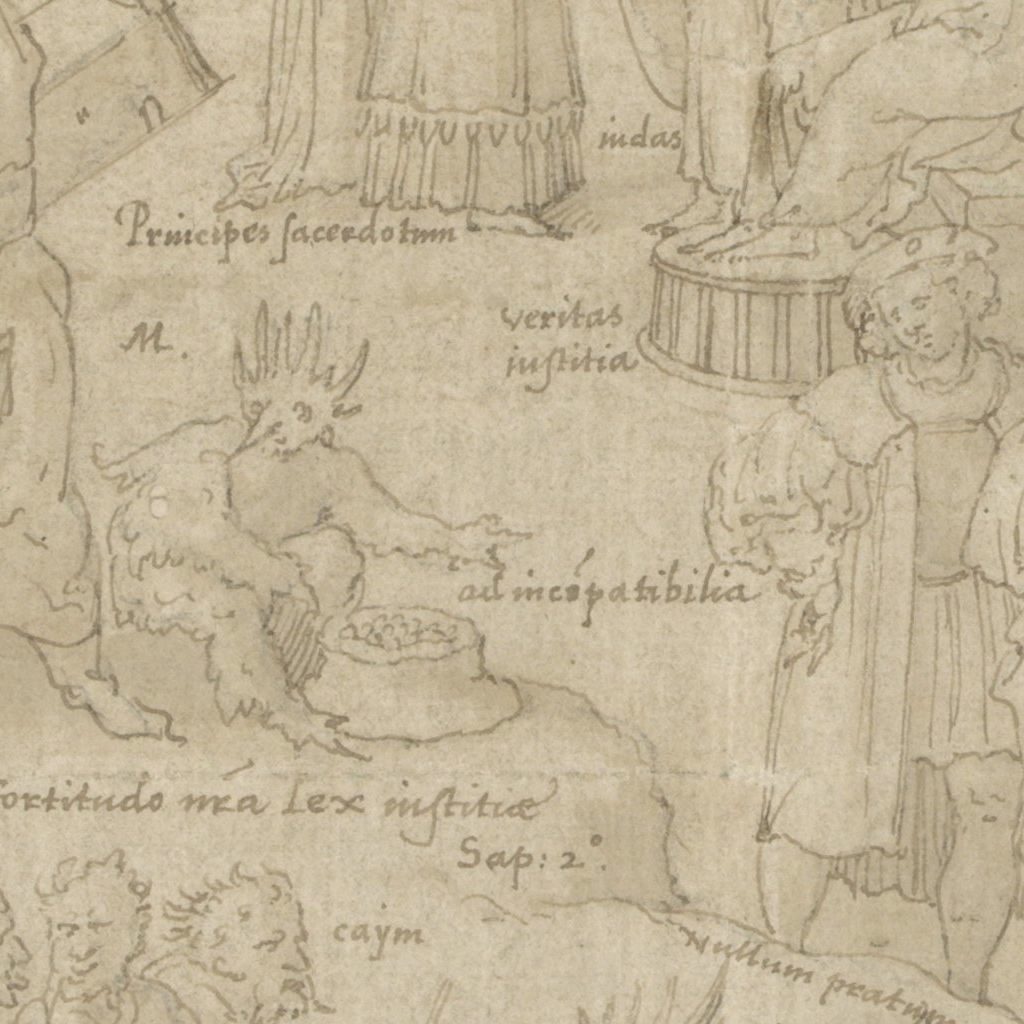 iudas
Principes sacerdotum
M.
veritas
iustitia
ad incōpatibilia
fortitudo nr̄a lex iustitiæ
Sap: 2°.
caym
Nullum pratum